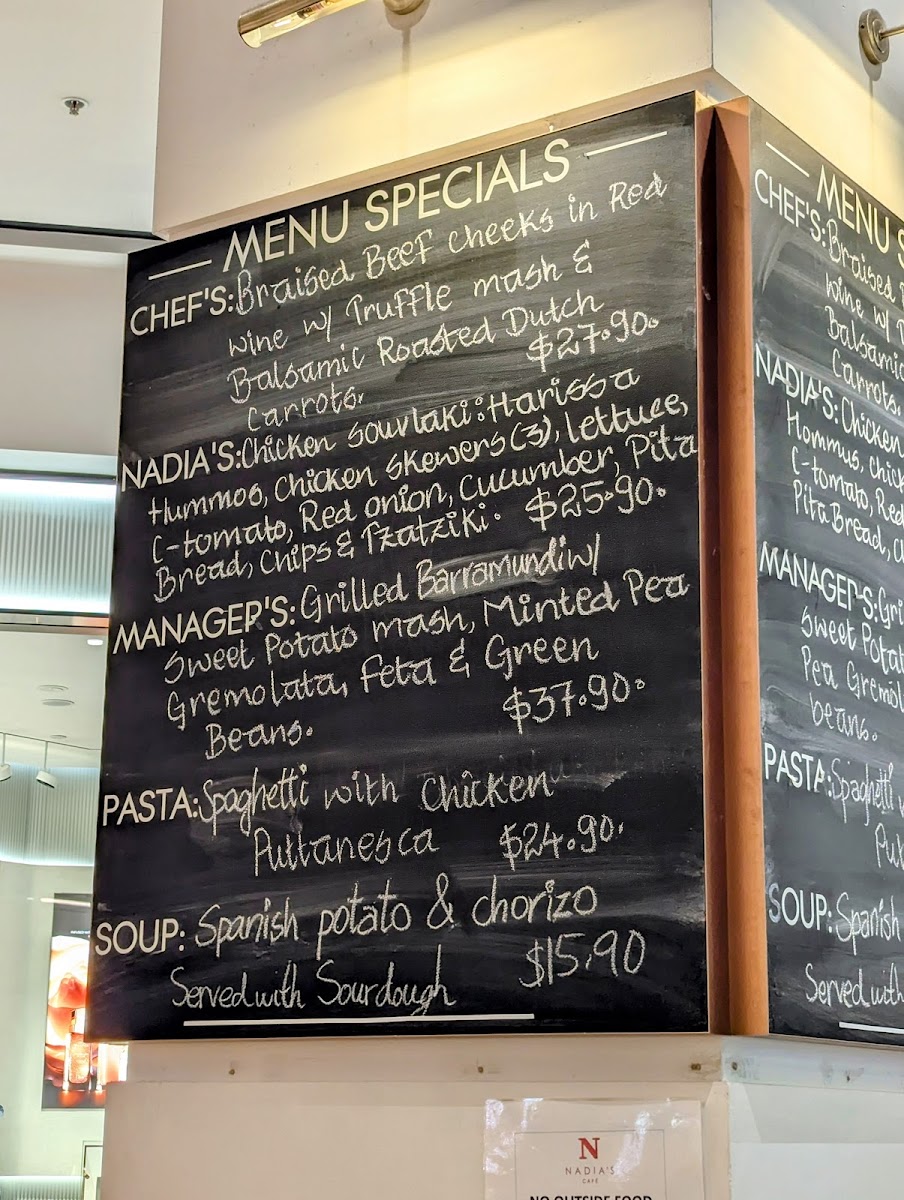 MENU SPECIALS
CHEF'S: Braised Beef cheeks in Red
wine w/ Truffle mash &
Balsamic Roasted Dutch
carrots. $27.90.
NADIA'S: Chicken Souvlaki: Harissa
Hummos, Chicken skewers (3), lettuce,
C-tomato, Red onion, Cucumber, Pita
Bread, Chips & Tzatziki. $25.90.
MANAGER'S: Grilled Barramundi w/
Sweet Potato mash, Minted Pea
Gremolata, Feta & Green
Beans. $37.90.
PASTA: Spaghetti with Chicken
Puttanesca $24.90.
SOUP: Spanish potato & chorizo
Served with Sourdough $15.90
MENU
CHEF'S: Braised
wine w/
Balsamic
Carrots.
NADIA'S: Chicken
Hommus,
C-tomato, Red
Pita Bread,
MANAGER'S:
Sweet
Pea
beans.
PASTA: Spaghetti
SOUP: Spanish
Served with
N
NADIA'S
CAFÉ
NO OUTSIDE FOOD